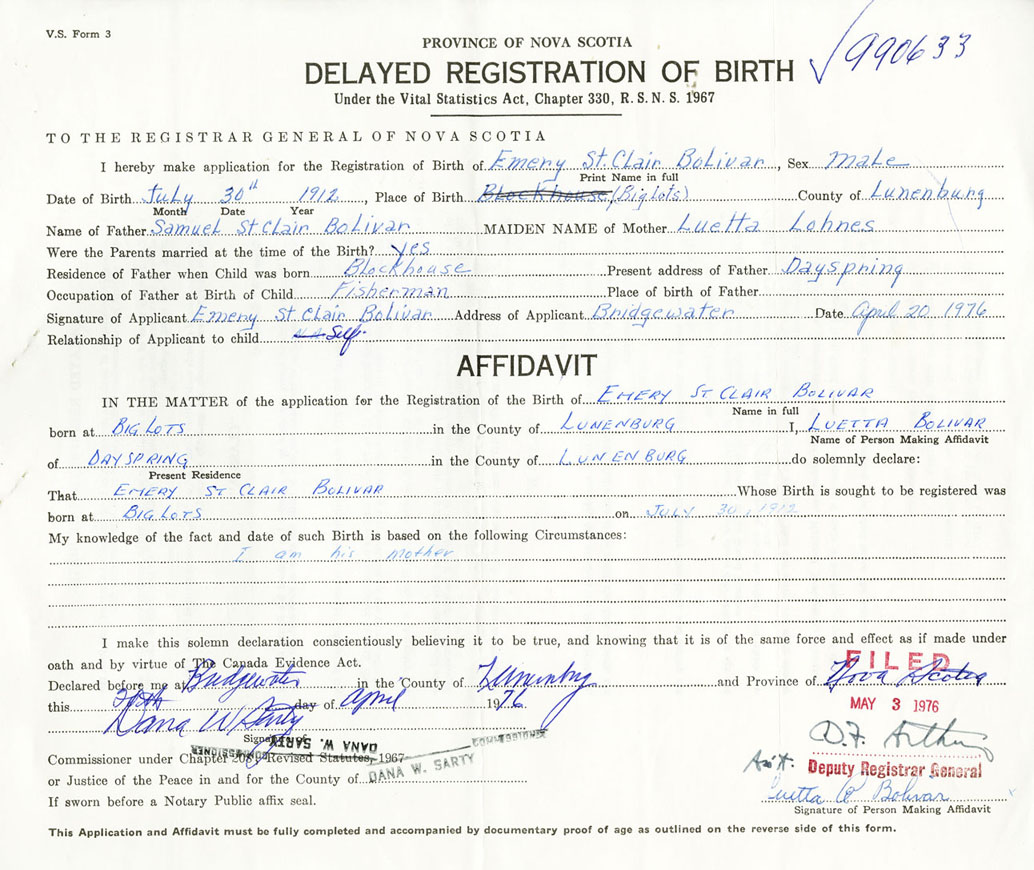 V.S. Form 3
990633
PROVINCE OF NOVA SCOTIA
DELAYED REGISTRATION OF BIRTH
Under the Vital Statistics Act, Chapter 330, R. S. N. S. 1967
TO THE REGISTRAR GENERAL OF NOVA SCOTIA
I hereby make application for the Registration of Birth of Emery St. Clair Bolivar, Sex Male
Print Name in full
Date of Birth July 30th 1912, Place of Birth Blockhouse (Big Lots) County of Lunenburg
Month Date Year
Name of Father Samuel St Clair Bolivar MAIDEN NAME of Mother Luetta Lohnes
Were the Parents married at the time of the Birth? Yes
Residence of Father when Child was born Blockhouse Present address of Father Dayspring
Occupation of Father at Birth of Child Fisherman Place of birth of Father
Signature of Applicant Emery St Clair Bolivar Address of Applicant Bridgewater Date April 20 1976
Relationship of Applicant to child Self
AFFIDAVIT
IN THE MATTER of the application for the Registration of the Birth of EMERY ST CLAIR BOLIVAR
Name in full
born at BIG LOTS in the County of LUNENBURG I, LUETTA BOLIVAR
Name of Person Making Affidavit
of DAYSPRING in the County of LUNENBURG do solemnly declare:
Present Residence
That EMERY ST CLAIR BOLIVAR Whose Birth is sought to be registered was
born at BIG LOTS on JULY 30, 1912
My knowledge of the fact and date of such Birth is based on the following Circumstances:
I am his mother
I make this solemn declaration conscientiously believing it to be true, and knowing that it is of the same force and effect as if made under
oath and by virtue of The Canada Evidence Act.
FILED
Declared before me at Bridgewater in the County of Lunenburg and Province of Nova Scotia
this 20th day of April 1976.
MAY 3 1976
Dana W Sarty
Signature of
D.F. Arthur
DANA W. SARTY
COMMISSIONER
COMMISSIONER
Commissioner under Chapter 208, Revised Statutes, 1967
Ass't. Deputy Registrar General
or Justice of the Peace in and for the County of
DANA W. SARTY
Luetta Bolivar
If sworn before a Notary Public affix seal.
Signature of Person Making Affidavit
This Application and Affidavit must be fully completed and accompanied by documentary proof of age as outlined on the reverse side of this form.